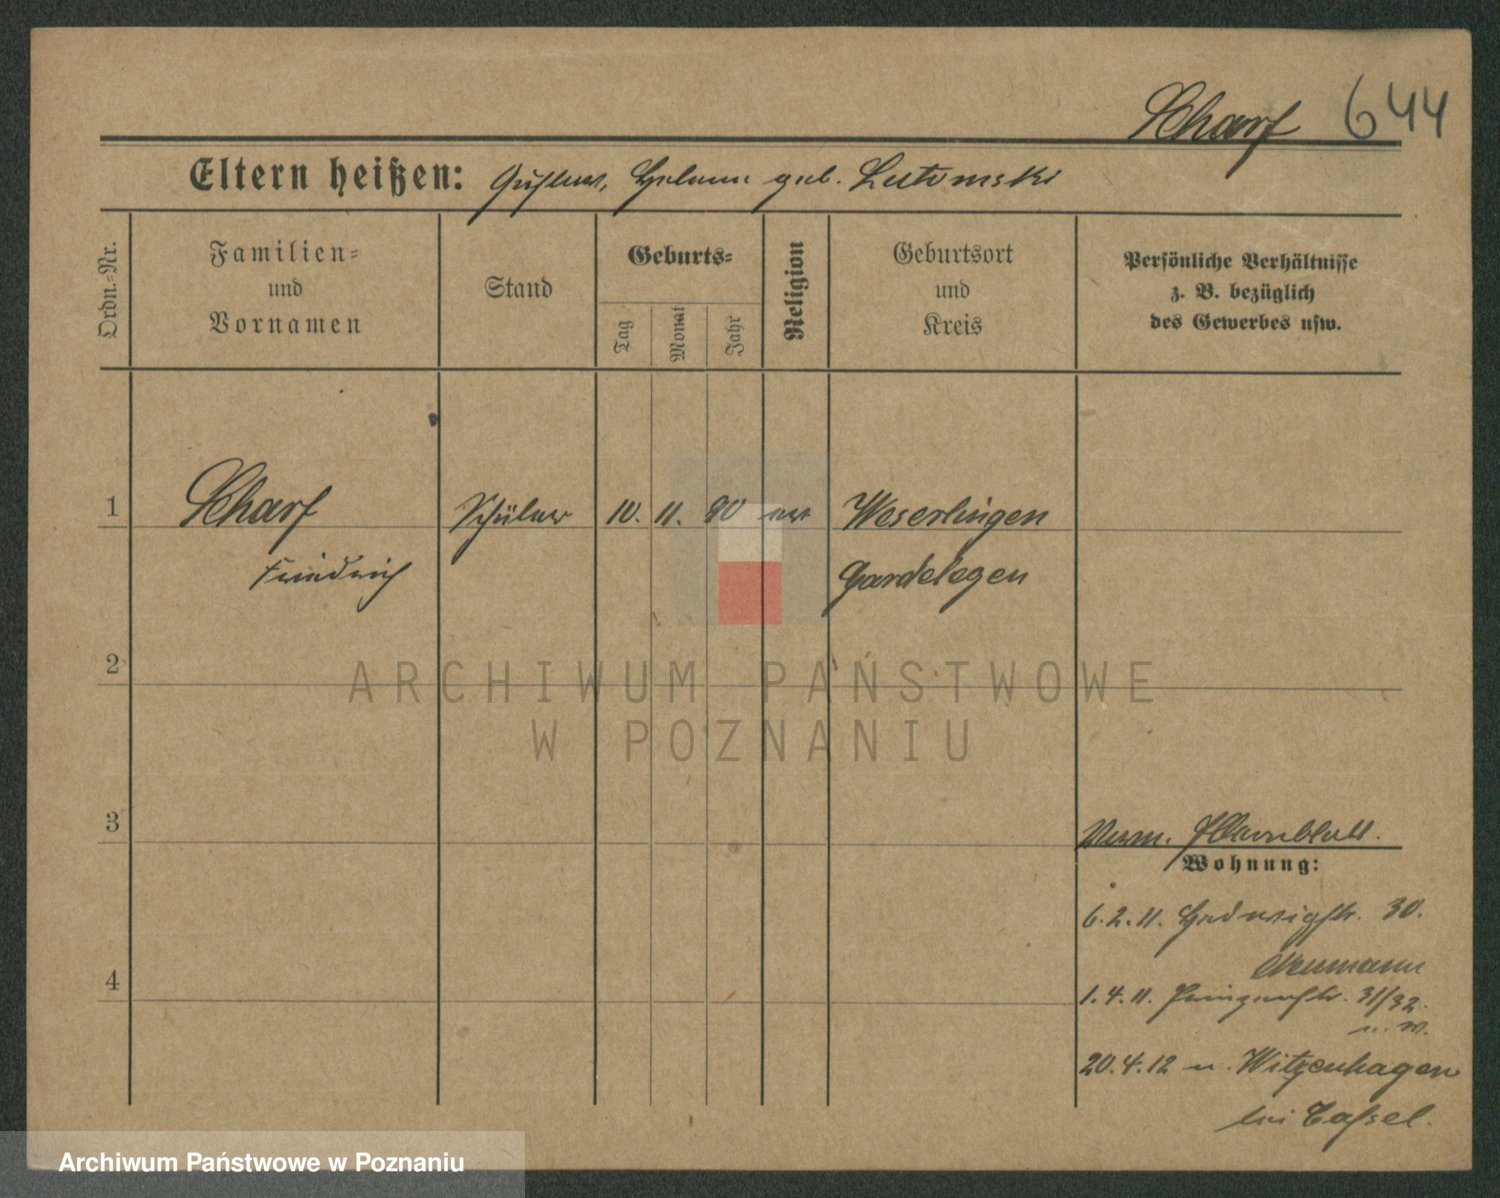 Scharf 644
Eltern heißen: Gustav, Helene geb. Lutomski
Ordn.-Nr.
Familien-
und
Vornamen
Stand
Geburts-
Tag
Monat
Jahr
Religion
Geburtsort
und
Kreis
Persönliche Verhältnisse
z. B. bezüglich
des Gewerbes usw.
1 Scharf Schüler 10. 11. 90 ev Weserlingen
Friedrich Gardelegen
2
ARCHIWUM PAŃSTWOWE
W POZNANIU
3
Verm.
Wohnung:
6.2.11. Hedwigstr. 30.
Neumann
4
1.4.11. Prinzenstr. 31/32.
20.4.12 n. Witzenhagen
bei Cassel.
Archiwum Państwowe w Poznaniu